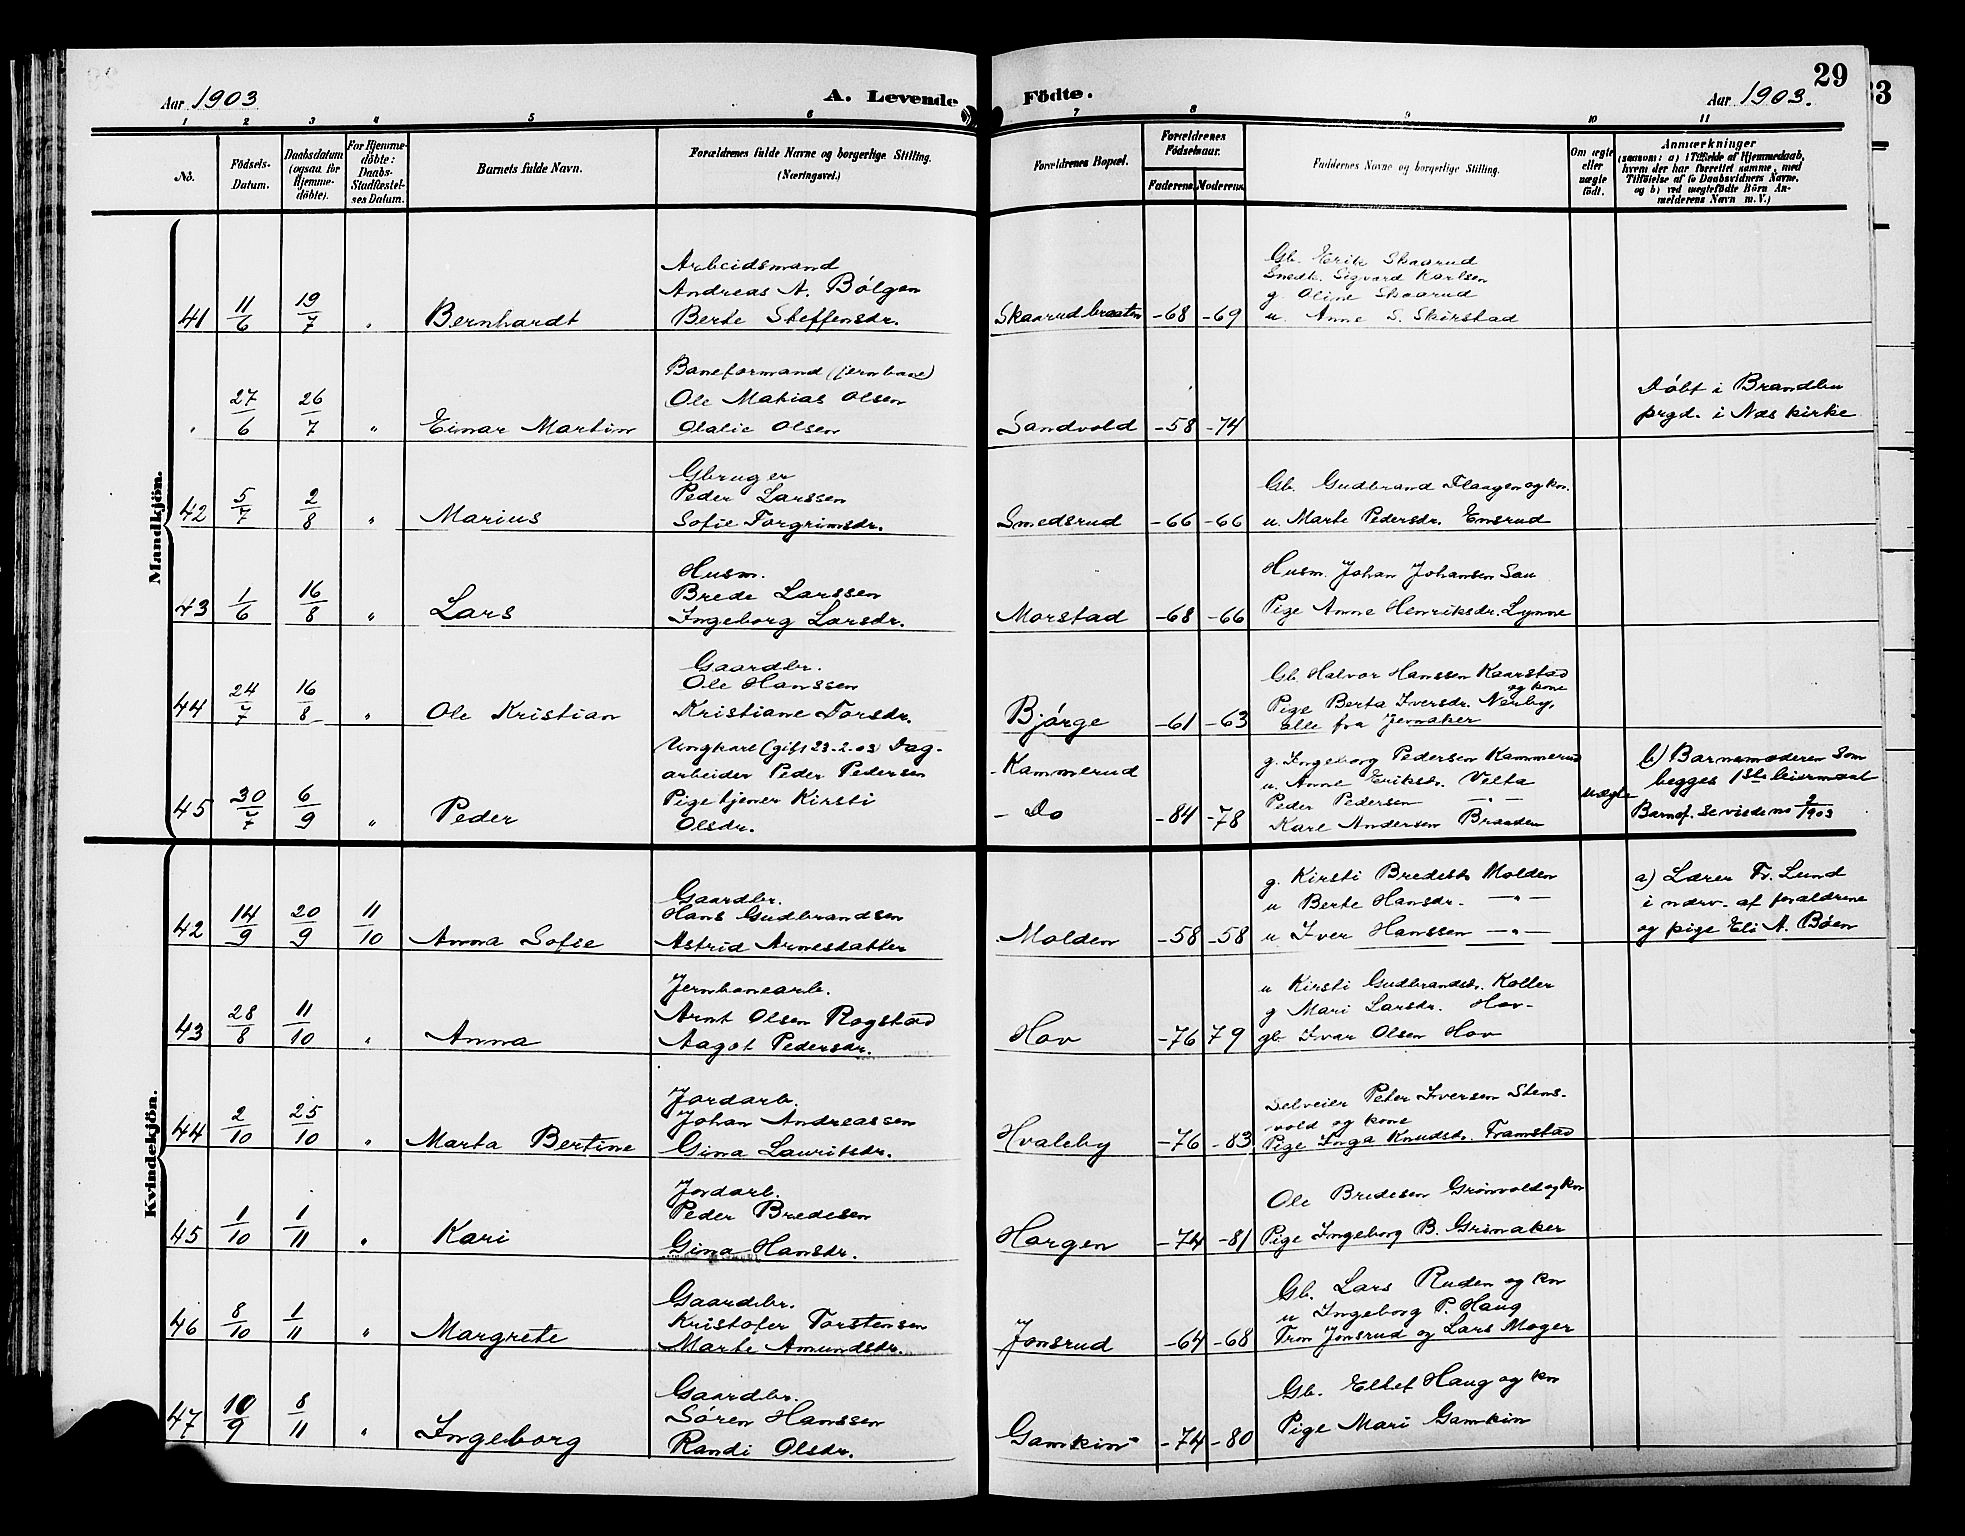 29
33
Aar 1903
A. Levende Födte.
Aar 1903.
1 2 3 4 5 6 7 8 9 10 11
No.
Födsels-Datum.
Daabsdatum (ogsaa for Hjemmedöbte).
For Hjemmedöbte: Daabs-Stadfæstelses Datum.
Barnets fulde Navn.
Forældrenes fulde Navne og borgerlige Stilling.
(Næringsvei.)
Forældrenes Bopæl.
Forældrenes Födselsaar.
Faderens. Moderens.
Faddernes Navne og borgerlige Stilling.
Om ægte eller uægte födt.
Anmærkninger
(saasom: a) i Tilfælde af Hjemmedaab,
hvem der har forrettet samme, med
Tilföielse af to Daabsvidners Navne,
og b) ved uægtefödte Börn Anmelderens Navn m. V.)
Mandkjön.
Arbeidsmand
Andreas A. Bölgen
41 11/6 19/7 " Bernhardt Berte Steffensdr. Skaarudbraaten -68 -69
Gb. Erik Skaarud
Smedk. Sigvard Karlsen
g. Oline Skaarud
u. Anne S. Skirstad
Baneformand (jernbane)
Ole Matias Olsen
" 27/6 26/7 " Einar Martin Olalie Olsen Sandvold -58 -74
Döbt i Brandbu
prgd. i Næs kirke
Gbruger
Peder Larssen
42 5/7 2/8 " Marius Sofie Torgrimsdr. Smedsrud -66 -66
Gb. Gudbrand Flaagen og kn.
u. Marte Pedersdr. Ensrud
Husm.
Brede Larssen
43 1/6 16/8 " Lars Ingeborg Larsdr. Morstad -68 -66
Husm. Johan Johansen Sau
Pige Anne Henriksdr. Lynne
Gaardbr.
Ole Hanssen
44 24/7 16/8 " Ole Kristian Kristiane Torsdr. Bjørge -61 -63
Gb. Halvor Hanssen Kaarstad
og kone
Pige Berta Iversdr. Neuby,
Elle fra Jevnaker
Ungkarl (gift 23-2-03) Dag-
arbeider Peder Pedersen
Pige tjener Kirsti
45 30/7 6/9 " Peder Olsdr.
- Kammerud
- Do -84 -78
g. Ingeborg Pedersen Kammerud
u. Anne Eriksdr. Velta
Peder Pedersen — " —
Karl Andersen Braaden
Uægte
b) Barnemoderen som
begges 1ste leiermaal
Barnef. se viede no 2/1903
Kvindekjön.
Gaardbr.
Hans Gudbrandsen
42 14/9 20/9 11/10 Anna Sofie Astrid Arnesdatter Molden -58 -58
g. Kirsti Bredesdr Molden
u Berte Hansdr. — " —
u Iver Hanssen — " —
a) Lærer Fr. Lund
i nærv. af forældrene
og pige Eli A. Böen
Jernbanearb.
Arnt Olsen Rogstad
43 28/8 11/10 " Anna Aagot Pedersdr. Hov -76 79
u Kirsti Gudbrandsdr. Koller
g Mari Larsdr. Hov-
gb Ivar Olsen Hov
Jordarb.
Johan Andreassen
44 2/10 25/10 " Marta Bertine Gina Lauritsdr. Hvaleby -76 -83
Selveier Peter Iversen Stens-
vold og kone
Pige Inga Knudsdr. Framstad
Jordarb.
Peder Bredesen
45 1/10 1/11 " Kari Gina Hansdr. Horgen -74 -81
Ole Bredesen Grönvold og kn
Pige Ingeborg B. Grimaker
Gaardbr.
Kristofer Torstensen
46 8/10 1/11 " Margrete Marte Amundsdr. Jonsrud -64 -68
Gb. Lars Ruden og kn
u Ingeborg P. Haug
Tron Jonsrud og Lars Moger
Gaardbr.
Sören Hanssen
47 10/9 8/11 " Ingeborg Randi Olsdr. Gamkin -74 -80
Gb. Eltet Haug og kn
Pige Mari Gamkin